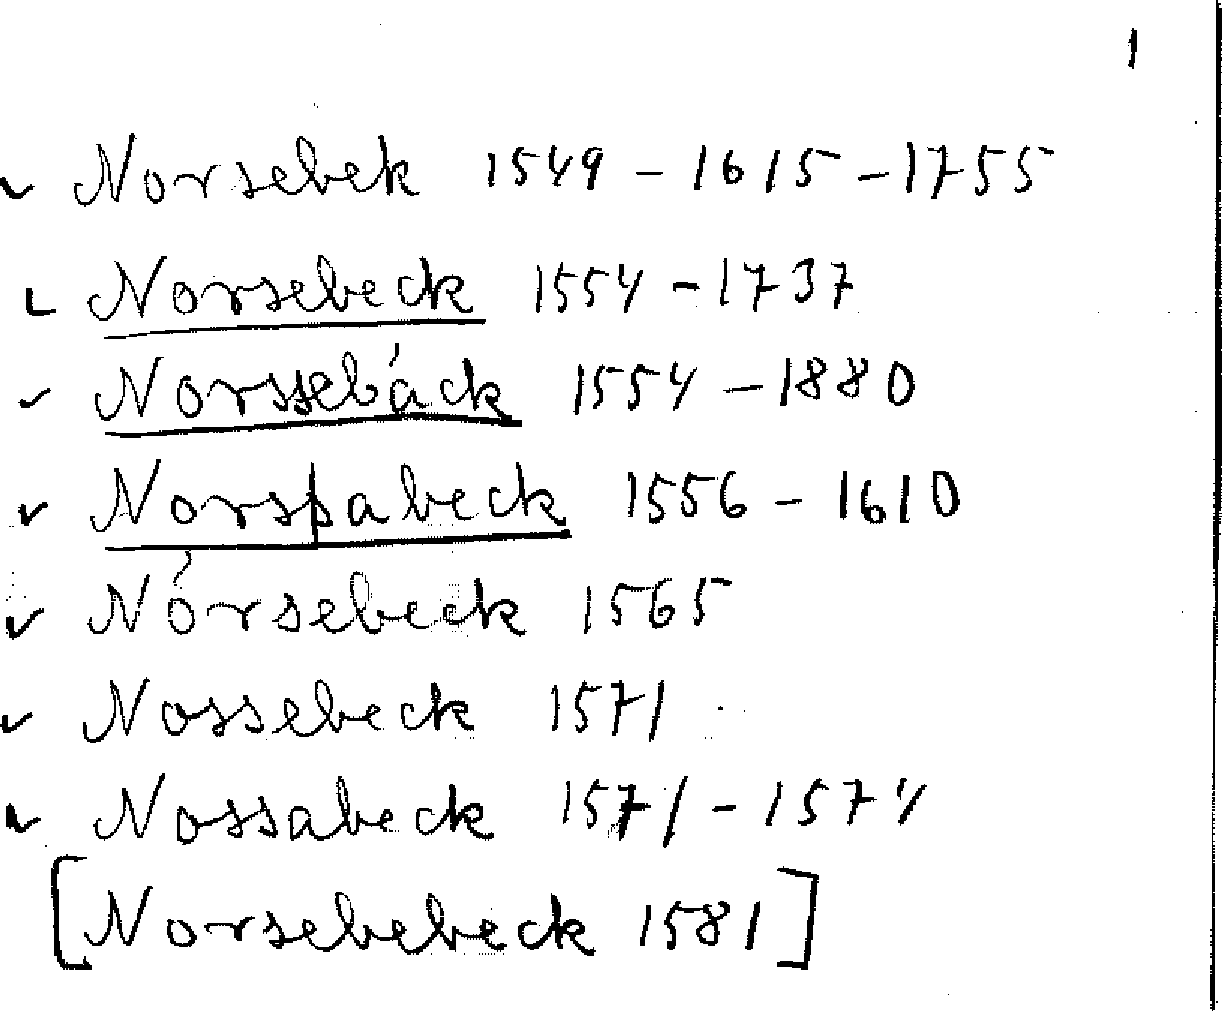 1
✓ Norsebek 1549 - 1615 - 1755
✓ Norsebeck 1554 - 1737
✓ Norssebäck 1554 - 1880
✓ Norssabeck 1556 - 1610
✓ Nórsebeck 1565
✓ Nossebeck 1571
✓ Nossabeck 1571 - 1574
[Norsebebeck 1581]